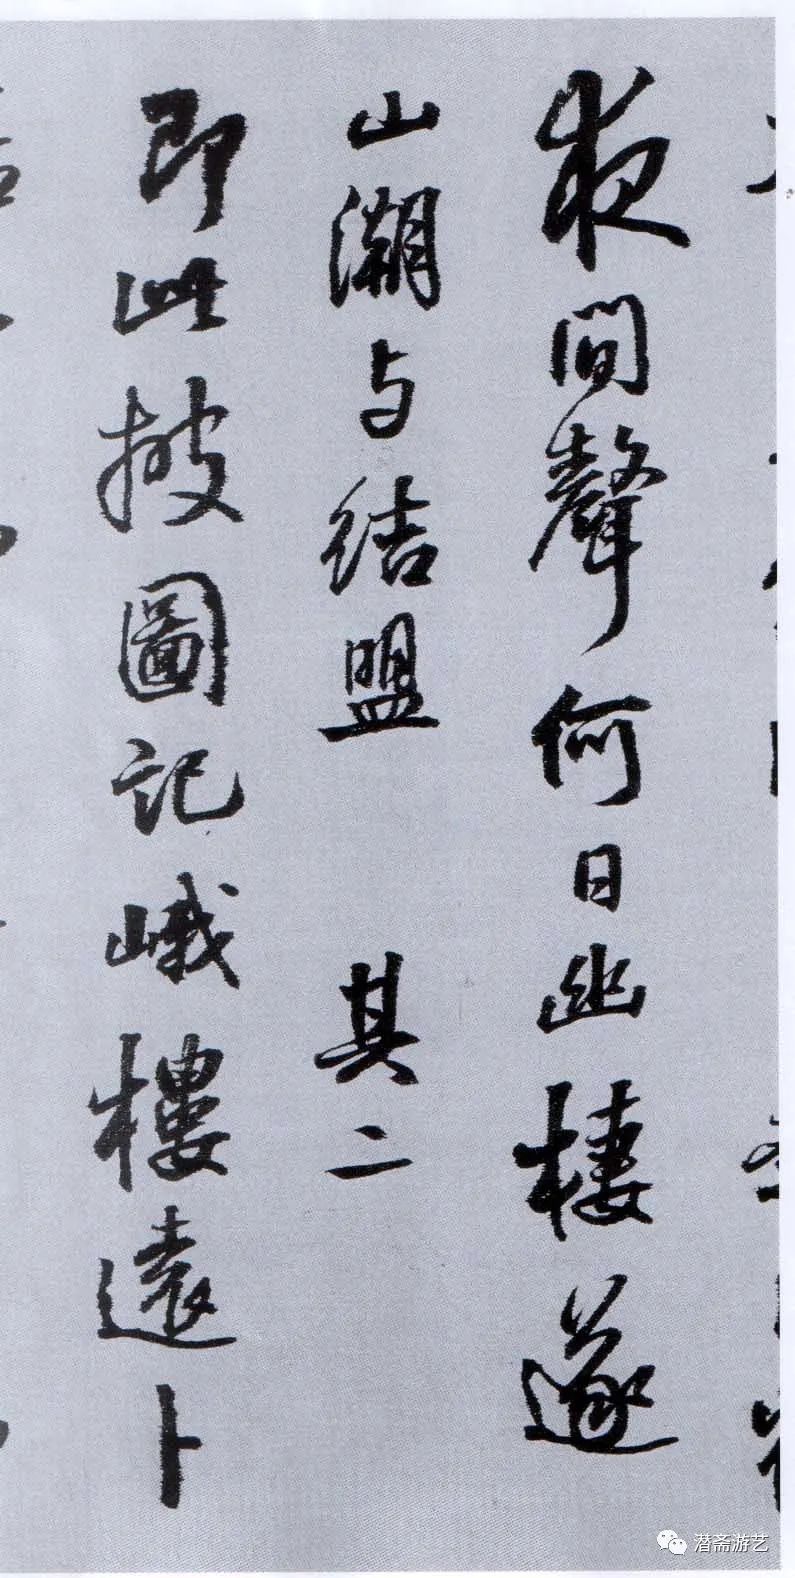 夜間聲何日幽棲遂
山潮与結盟　其二
即此披圖記峨樓遠卜
潜斋游艺